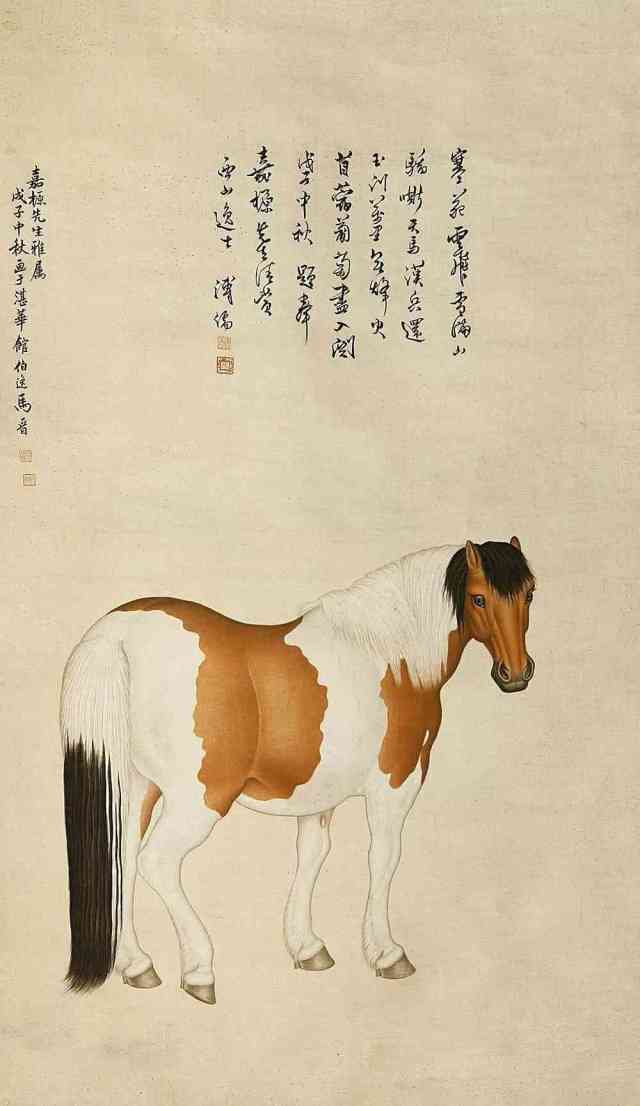 苑雲飛雪滿山
驕嘶天馬漢兵還
玉門萬里無烽火
苜蓿葡萄盡入關
戊子中秋 題奉
嘉極先生清賞
西山逸士 溥儒
嘉極先生雅屬
戊子中秋画于湛華館 伯逸馬晉